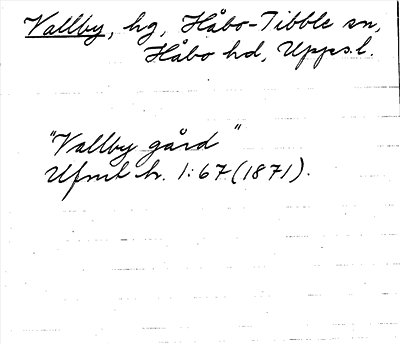 Vallby, hg, Håbo-Tibble sn,
Håbo hd, Upps.l.
"Vallby gård"
Ufmt h. 1:67(1871).